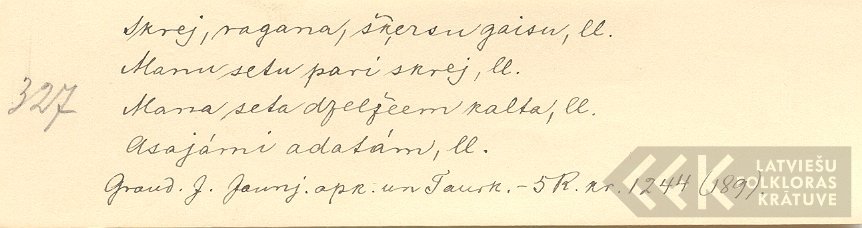 Skrej, ragana, šķersu gaisu, ll.
Manu setu pari skrej, ll.
327
Mana seta dzelžeem kalta, ll.
Asajámi adatám, ll.
Graud. J. Jaunj. apk. un Taurk. - 5 R. kr. 1244 (189).
LATVIEŠU
FOLKLORAS
KRĀTUVE